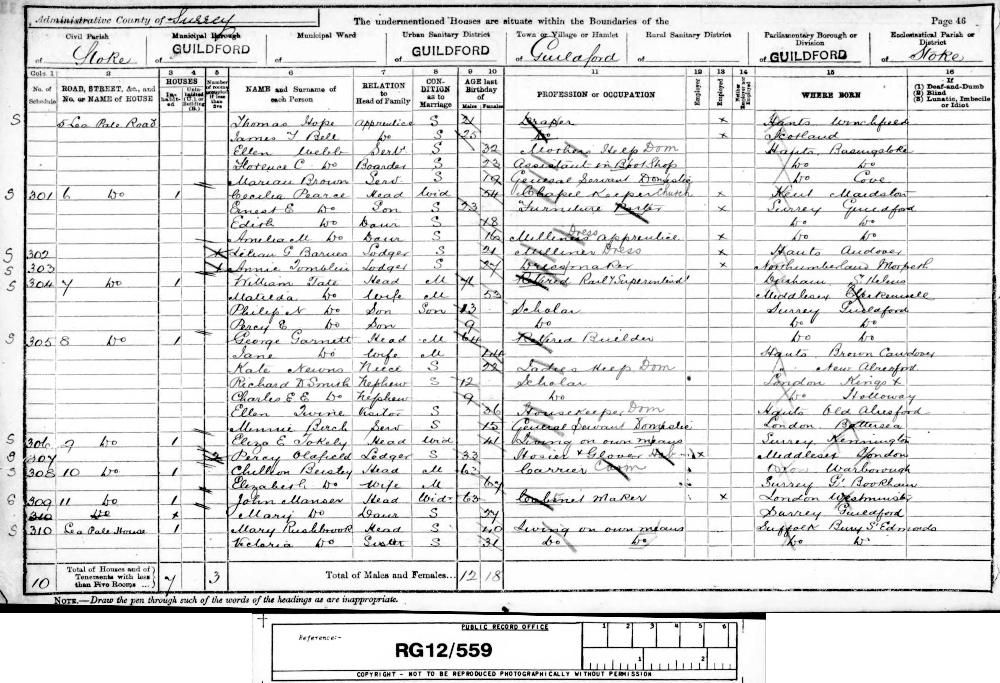 Administrative County of Surrey The undermentioned Houses are situate within the Boundaries of the Page 46
Civil Parish Municipal Borough Municipal Ward Urban Sanitary District Town or Village or Hamlet Rural Sanitary District Parliamentary Borough or Division Ecclesiastical Parish or District
of Stoke of GUILDFORD of of GUILDFORD of Guildford of of GUILDFORD of Stoke
Cols. 1 2 3 4 5 6 7 8 9 10 11 12 13 14 15 16
No. of Schedule ROAD, STREET, &c., and No. or NAME of HOUSE HOUSES Inhabited Number of rooms occupied if less than five NAME and Surname of each Person RELATION to Head of Family CONDITION as to Marriage AGE last Birthday of Males Females PROFESSION or OCCUPATION Employer Employed Neither WHERE BORN If (1) Deaf-and-Dumb (2) Blind (3) Lunatic, Imbecile or Idiot
5 Lea Pale Road Thomas Hope Apprentice S 21 Draper x Hants Winchfield
James T Bell Do S 25 Do x Scotland
Ellen Webb Servt S 32 Mothers Help Dom Hants, Basingstoke
Florence C Do Boarder S 23 Assistant in Boot Shop Do Do
Marian Brown Serv S 19 General Servant Domestic Do Cove
S 301 6 Do 1 Cecilia Pearce Head Wid 54 Chapel Keeper x Kent Maidston
Ernest E Do Son S 23 Furniture Porter x Surrey Guildford
Edith Do Daur S 18 Do Do
Amelia M Do Daur S 16 Milliner Dress apprentice x Do Do
S 302 Lilian G Barnes Lodger S 21 Milliner Dress x Hants Andover
S 303 Annie Tomblin Lodger S 27 Dressmaker x Northumberland Morpeth
S 304 7 Do 1 William Tate Head M 71 Retired Raily Superintendt St Helens
Matilda Do Wife M 53 Middlesex Clerkenwell
Philip N Do Son Son 13 Scholar Surrey Guildford
Percy E Do Son 9 Do Do Do
S 305 8 Do 1 George Garnett Head M 64 Retired Builder Do Do
Jane Do Wife M Hants Brown Candover
Kate Newns Niece S 22 Ladies Help Dom " New Alresford
Richard D Smith Nephew S 12 Scholar London Kings x
Charles E E Do Nephew 9 Do Do Holloway
Ellen Irvine Visitor S 36 Housekeeper Dom Hants Old Alresford
Minnie Birch Serv S 15 General Servant Domestic London Battersea
S 306 9 Do 1 Eliza E Tokely Head Wid 41 Living on own means Surrey Kennington
S 307 2 Percy Oldfield Lodger S 33 Hosier & Glover x Middlesex London
S 308 10 Do 1 Head M 63 Carrier Oxon Warborough
Elizabeth Do Wife M 67 Surrey Gt Bookham
309 11 Do 1 John Manser Head Widr 63 Cabinet Maker x London Westminster
310 Do x Mary Do Daur S 27 Surrey Guildford
S 310 Lea Pale House 1 Mary Rushbrook Head S 40 Living on own means Suffolk Bury St Edmonds
Victoria Do Sister S 31 Do Do Do Do
10 Total of Houses and of Tenements with less than Five Rooms ... 7 3 Total of Males and Females... 12 18
NOTE.—Draw the pen through such of the words of the headings as are inappropriate.
PUBLIC RECORD OFFICE
Reference:-
RG12/559
1 2 3 4 5 6
1 2
COPYRIGHT - NOT TO BE REPRODUCED PHOTOGRAPHICALLY WITHOUT PERMISSION